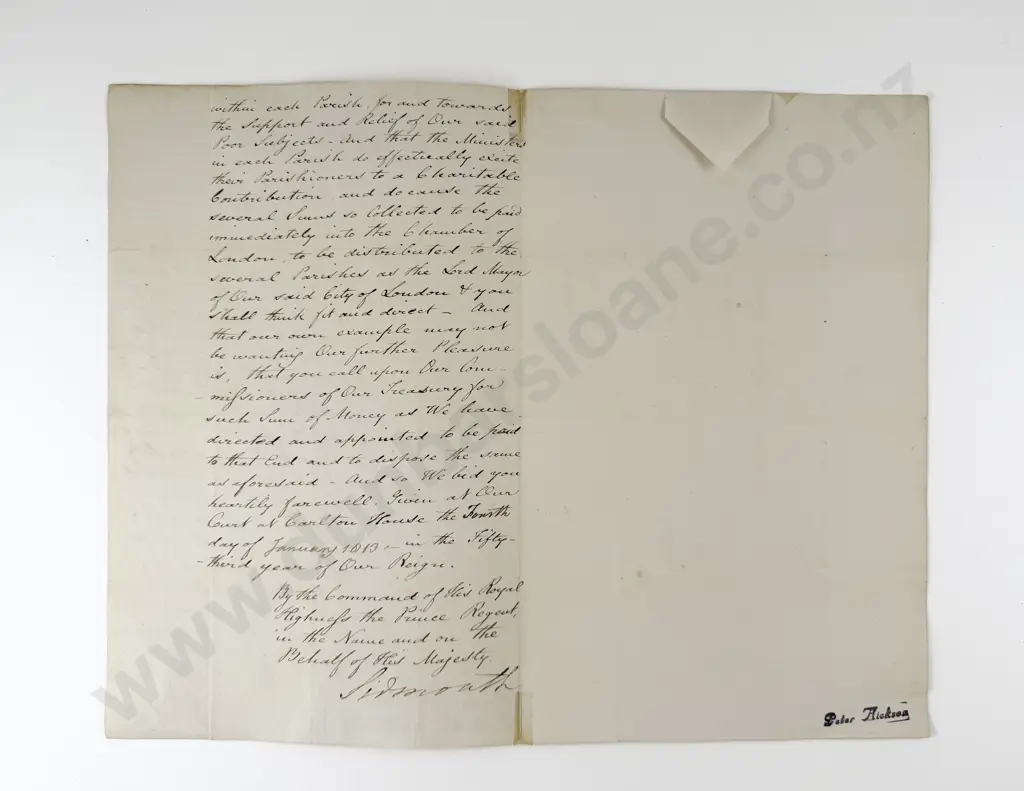 within each Parish, for and towards
the Support and Relief of Our said
Poor Subjects - And that the Ministers
in each Parish do effectually excite
their Parishioners to a Charitable
Contribution, and do cause the
several Sums so Collected to be paid
immediately into the Chamber of
London, to be distributed to the
several Parishes as the Lord Mayor
of Our said City of London & you
shall think fit and direct - And
that our own example may not
be wanting Our further Pleasure
is, that you call upon Our Com-
-missioners of Our Treasury for
such Sum of Money as We have
directed and appointed to be paid
to that End and to dispose the same
as aforesaid - And so We bid you
heartily farewell. Given at Our
Court at Carlton House the Fourth
day of January 1813 - in the Fifty-
-third year of Our Reign.
By the Command of His Royal
Highness the Prince Regent,
in the Name and on the
Behalf of His Majesty.
Sidmouth
Peter